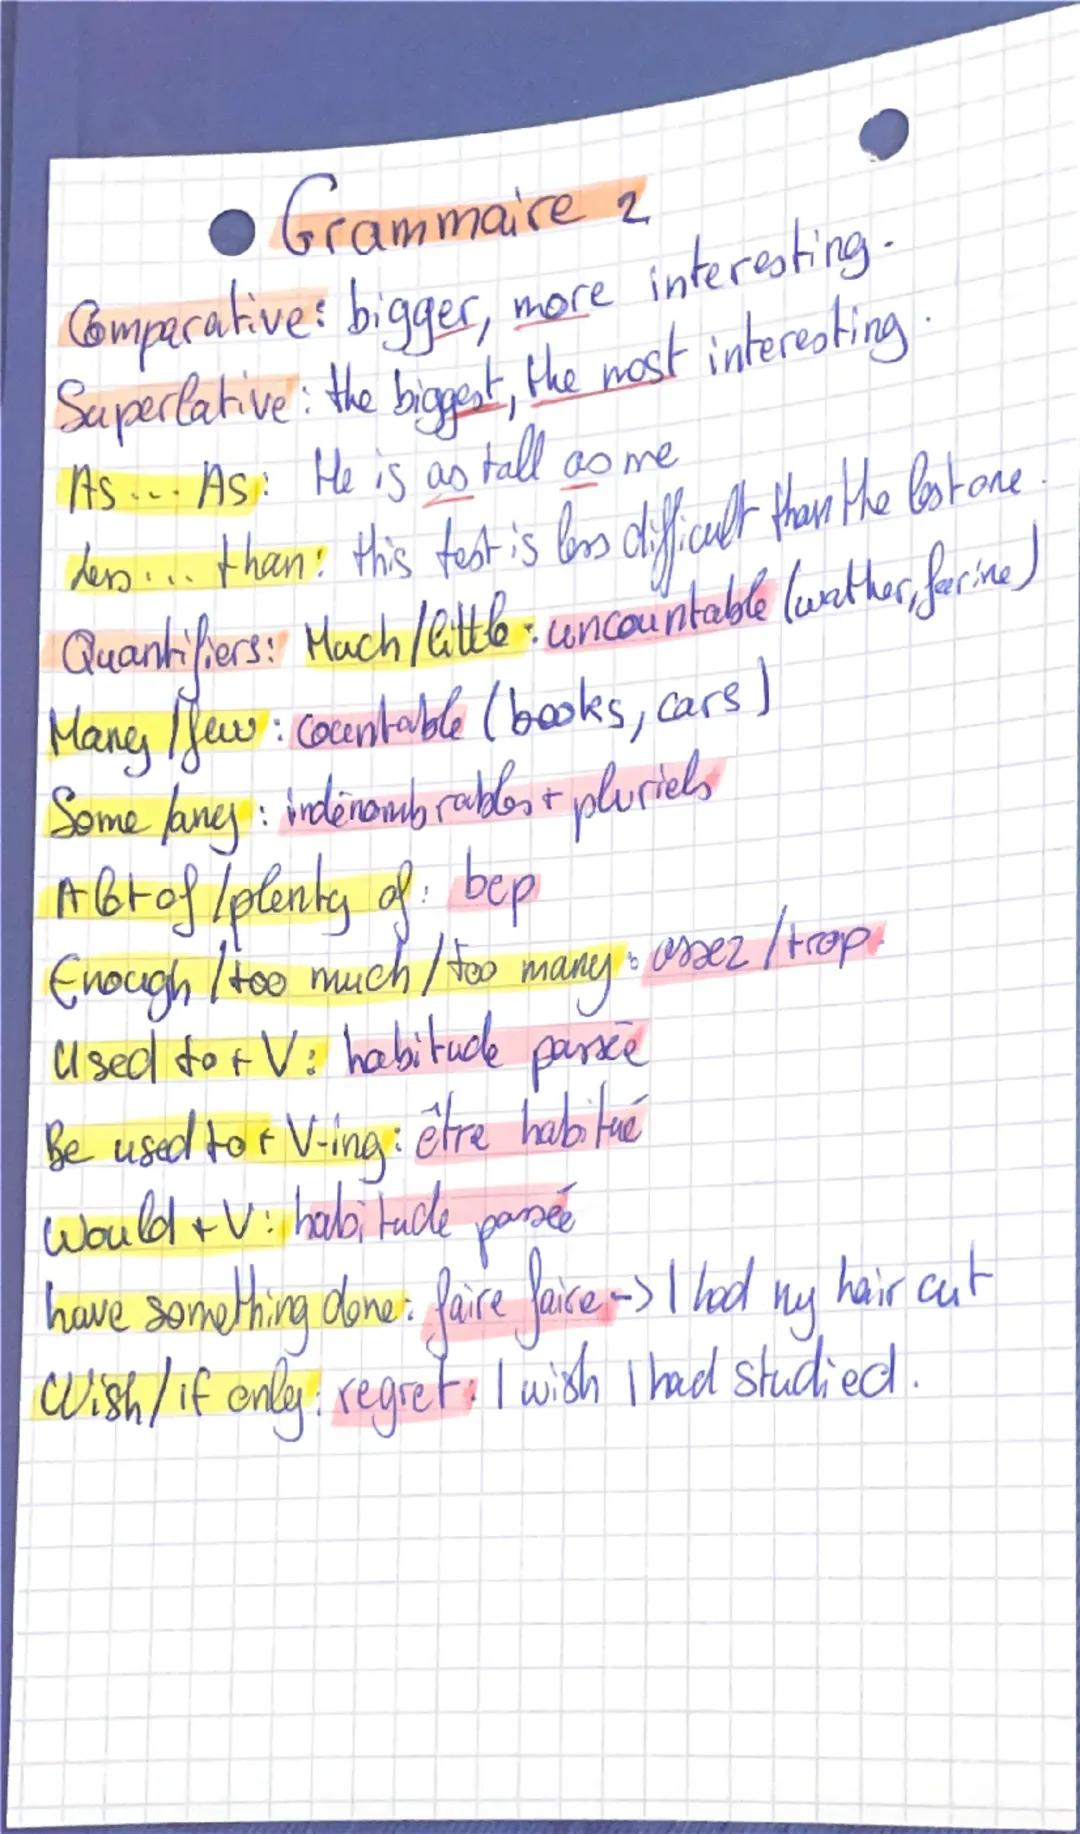 Grammaire 2
Comparative: bigger, more interesting.
Superlative: the biggest, the most interesting.
As ... As: He is as tall as me
Less ... than: this test is less difficult than the last one.
Quantifiers: Much/little: uncountable (wather, farine)
Many/few: countable (books, cars)
Some/any: indénombrables + pluriels
A lot of/plenty of: bcp
Enough/too much/too many: assez/trop.
Used to + V: habitude passée
Be used to + V-ing: être habitué
Would + V: habitude passée
have something done: faire faire -> I had my hair cut
Wish/if only: regret: I wish I had studied.